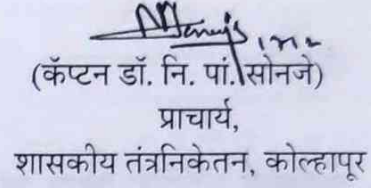 (कॅप्टन डॉ. नि. पां. सोनजे)
प्राचार्य,
शासकीय तंत्रनिकेतन, कोल्हापूर